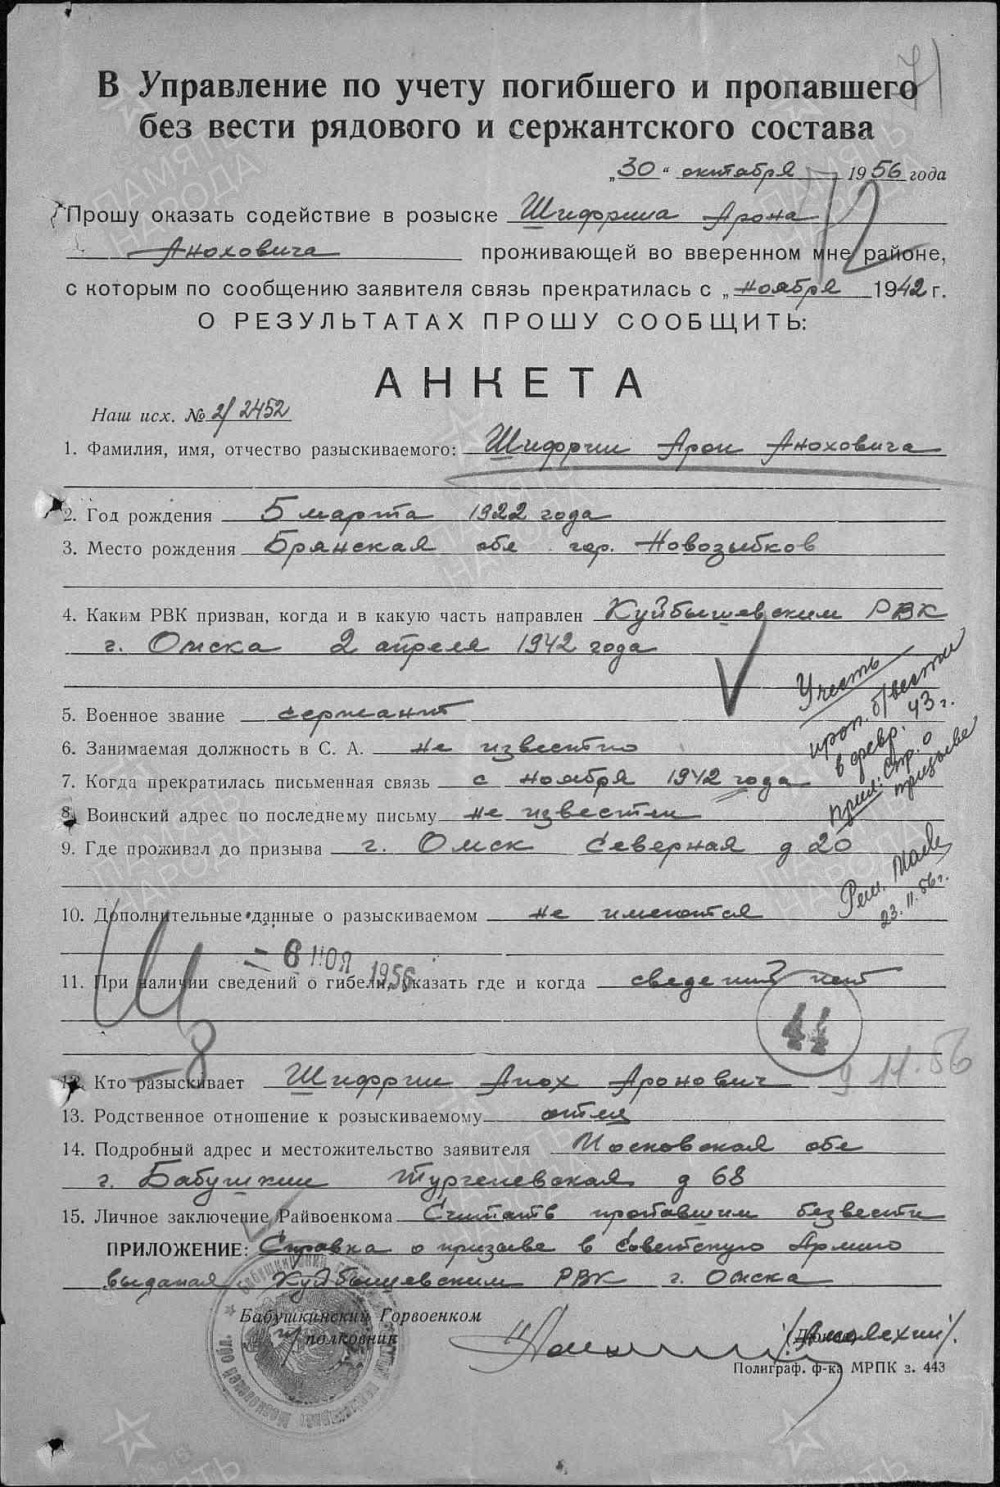 71
В Управление по учету погибшего и пропавшего
без вести рядового и сержантского состава
„30“ октября 1956 года
Прошу оказать содействие в розыске Шифрина Арона
Аноховича проживающей во вверенном мне районе,
72
с которым по сообщению заявителя связь прекратилась с „ноября 1942 г.
О РЕЗУЛЬТАТАХ ПРОШУ СООБЩИТЬ:
АНКЕТА
Наш исх. № 2/2452
1. Фамилия, имя, отчество разыскиваемого: Шифрин Арон Аноховича
2. Год рождения 5 марта 1922 года
3. Место рождения Брянская обл. гор. Новозыбков
4. Каким РВК призван, когда и в какую часть направлен Куйбышевским РВК
г. Омска 2 апреля 1942 года
5. Военное звание сержант
6. Занимаемая должность в С. А. не известно
7. Когда прекратилась письменная связь с ноября 1942 года
8. Воинский адрес по последнему письму не известен
9. Где проживал до призыва г. Омск Северная д 20
Учесть
проп. б/вести
в февр. 43 г.
Прил: Спр. о
призыве
23.11.56 г.
10. Дополнительные данные о разыскиваемом не имеются
- 6 НОЯ 1956
11. При наличии сведений о гибели, указать где и когда сведений нет
Ш
8
44
9 11.56
12. Кто разыскивает Шифрин Анох Аронович
13. Родственное отношение к розыскиваемому отец
14. Подробный адрес и местожительство заявителя Московская обл
г. Бабушкин Тургеневская д 68
15. Личное заключение Райвоенкома Считать пропавшим безвести
ПРИЛОЖЕНИЕ: Справка о призыве в Советскую Армию
выданая Куйбышевским РВК г. Омска
Бабушкинский Горвоенком
п/полковник
Полиграф. ф-ка МРПК з. 443
ПАМЯТЬ
НАРОДА